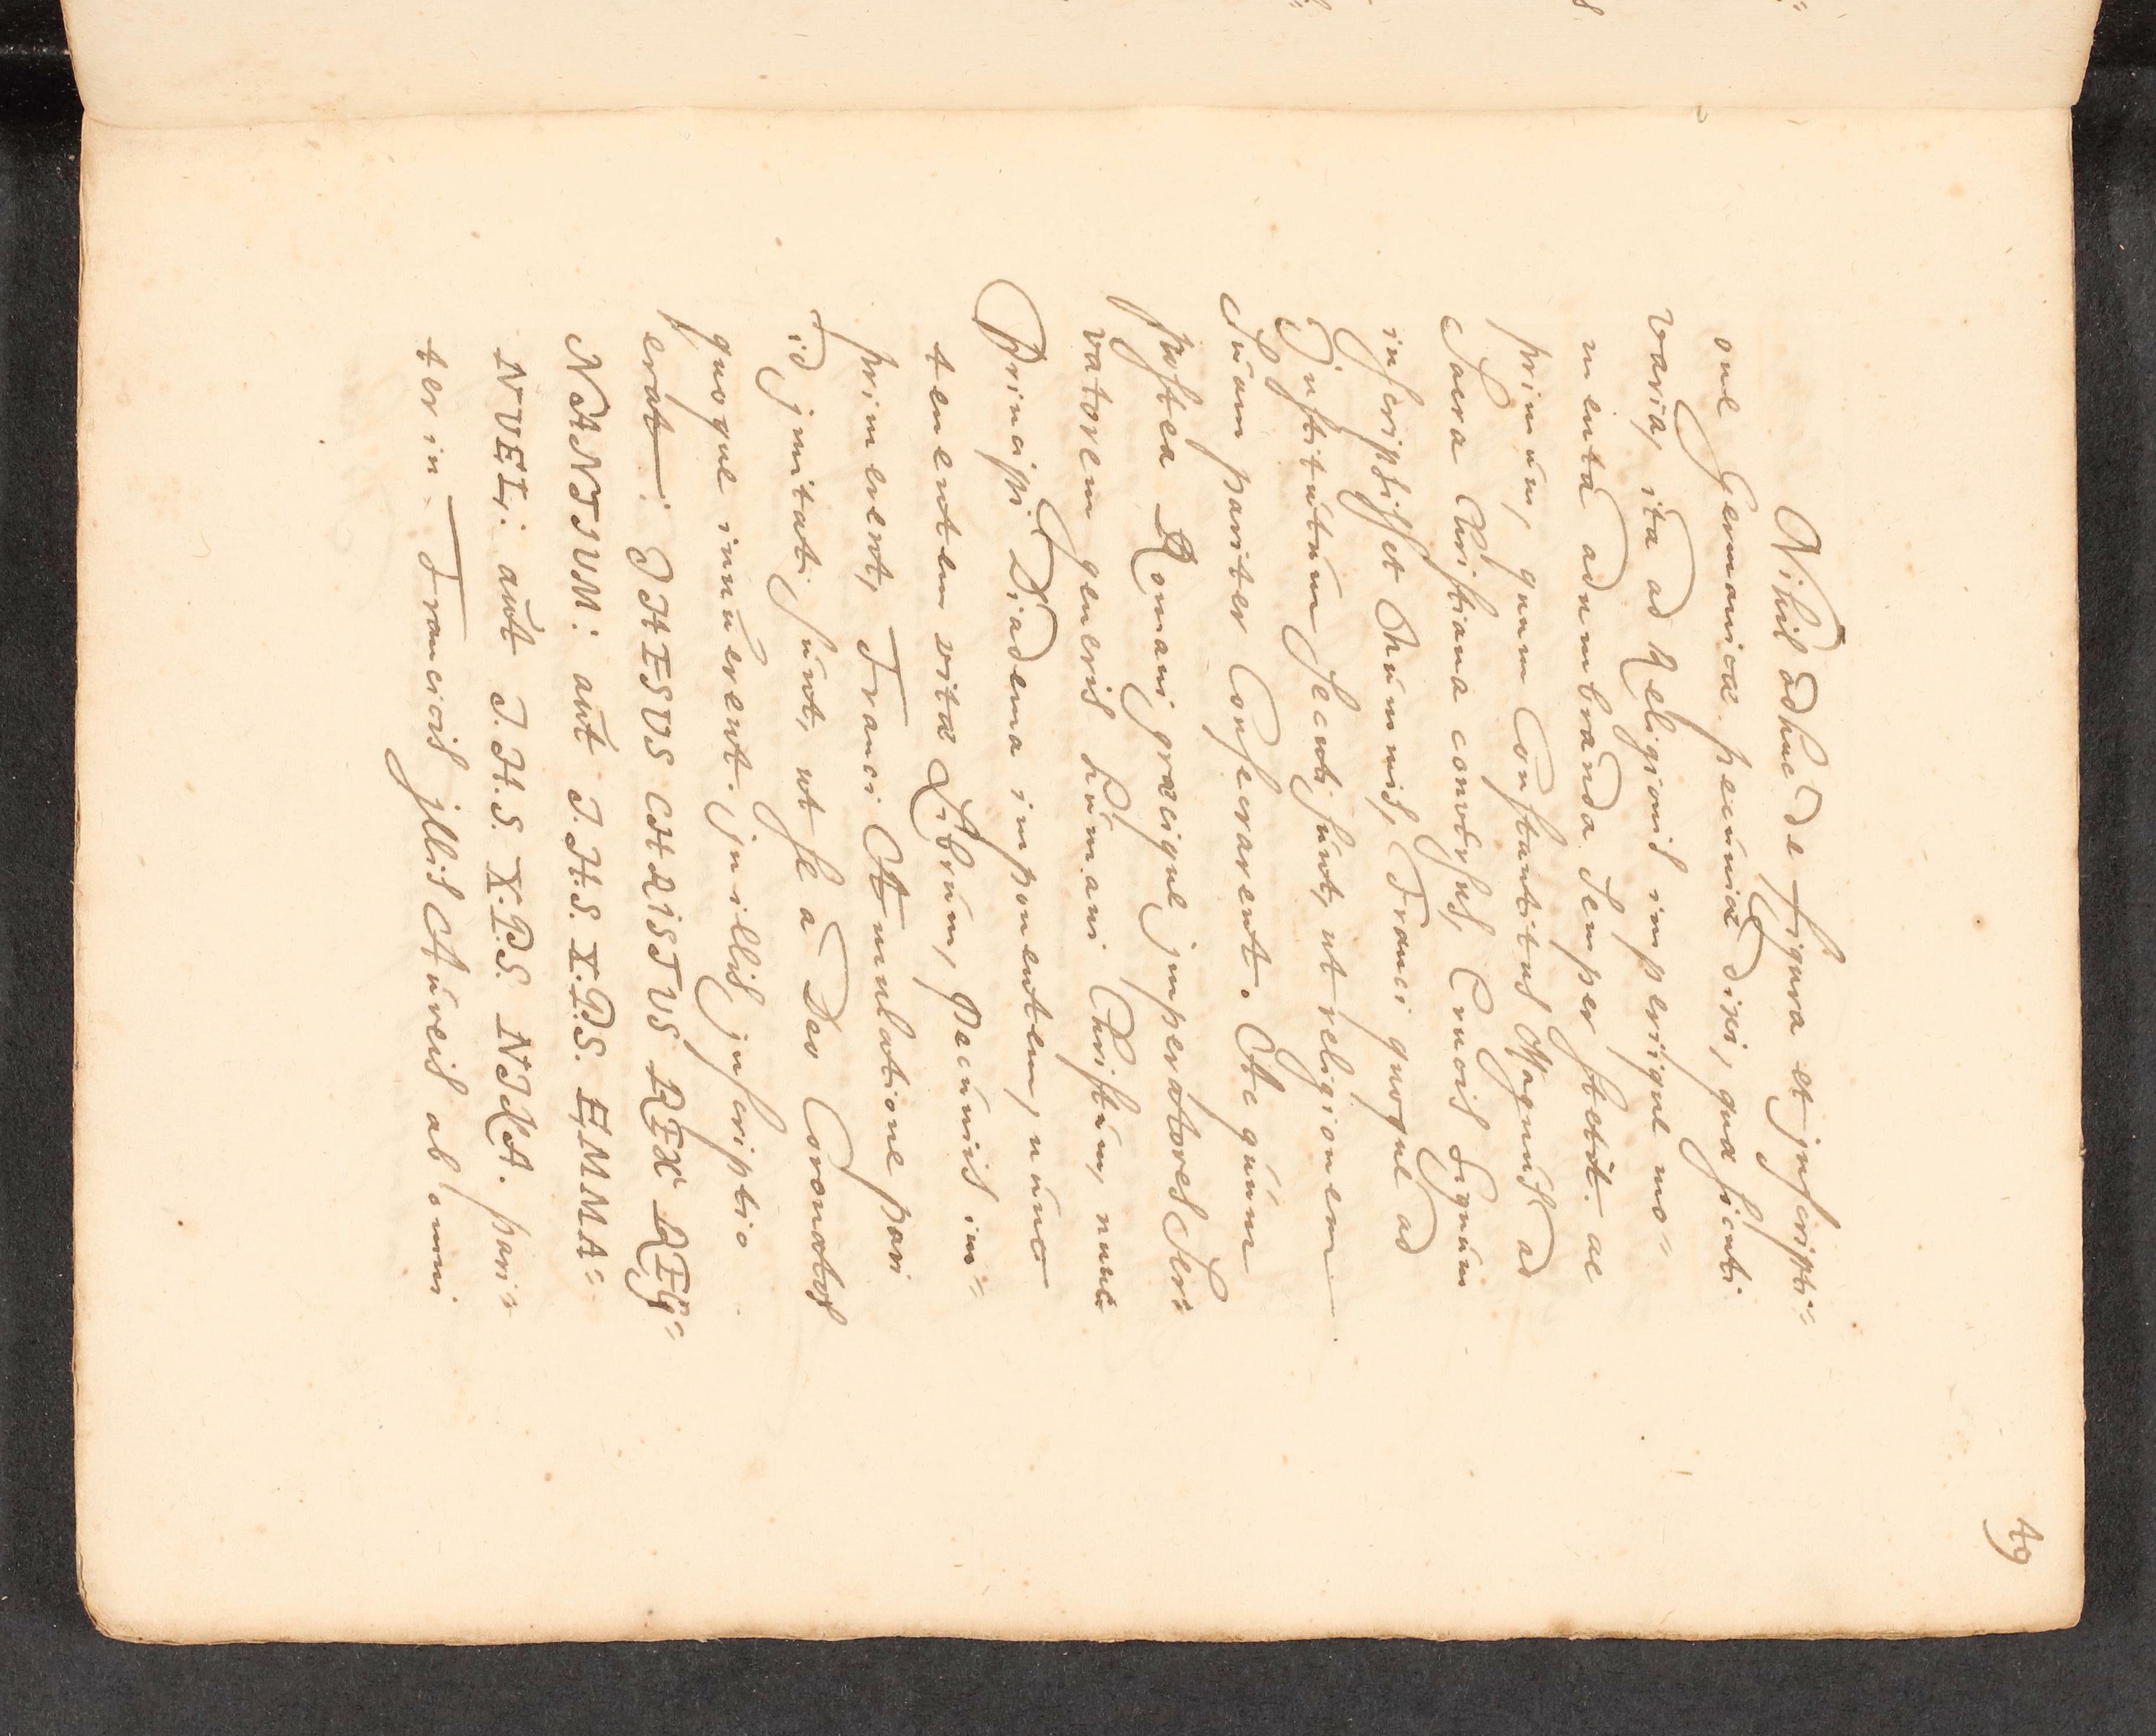 49
Nihil adhuc de figura et jnscripti=
one Germanicæ pecuniæ dixi, quæ sicuti
varia, ita ad Religionis imperiique mo=
menta adumbranda semper stetit. ac
primum, quum Constantinus Magnus ad
Sacra Christiana conversus, Crucis Signum
inscripsisset Nummis, Franci quoque ad
Institutum Secuti sunt, ut religionem
Suam pariter Consecrarent. Atque quum
postea Romani græcique jmperatores Ser=
vatorem generis humani Christum, nunc
Principi Diadema imponentem, nunc
tenentem vitæ Librum, pecuniis im=
primerent, Franci Æmulatione pari
id jmitati sunt, ut se a Deo Coronatos
quoque innuerent. jn illis jnscriptio
erat: JHESVS CHRISTVS REX REG=
NANTIVM: aut J.H.S. X.P.S. EMMA=
NVEL: aut J.H.S. X.P.S. NIKA. pari=
ter in Francicis jllis Aureis ab omni